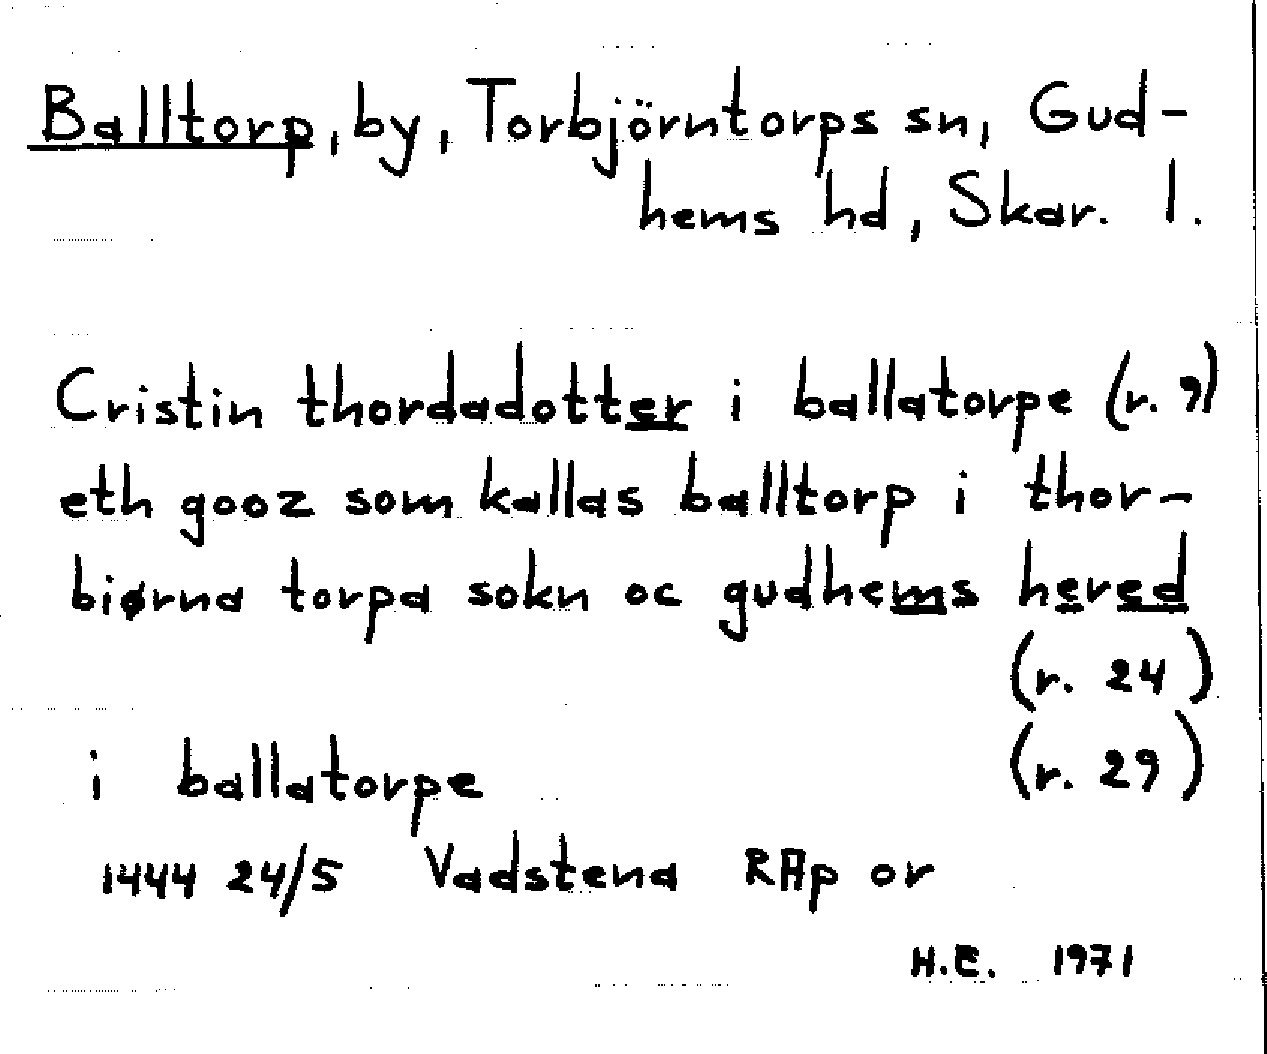 Balltorp, by, Torbjörntorps sn, Gud-
hems hd, Skar. l.
Cristin thordadotter i ballatorpe (r. 9)
eth gooz som kallas balltorp i thor-
biørna torpa sokn oc gudhems hered
(r. 24)
i ballatorpe (r. 29)
1444 24/5 Vadstena RAp or
H.E. 1971